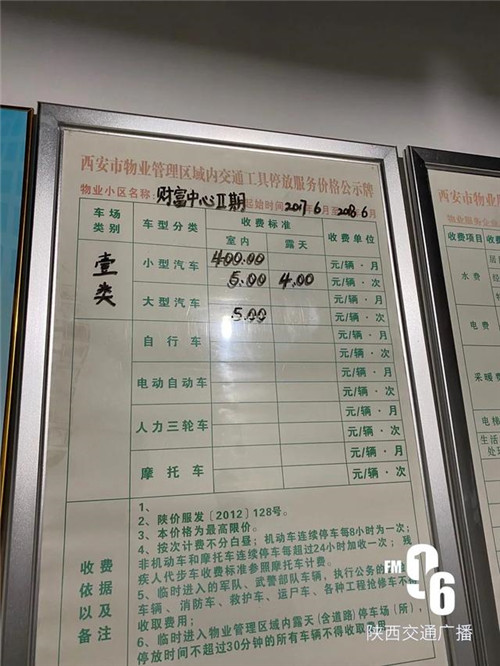 西安市物业管理区域内交通工具停放服务价格公示牌
物业小区名称：财富中心Ⅱ期 起始时间2017年6月至2018年6月
车场类别 车型分类 收费标准 收费单位
室内 露天
壹类
小型汽车 400.00 元/辆·月
5.00 4.00 元/辆·次
大型汽车 元/辆·月
5.00 元/辆·次
自行车 元/辆·月
元/辆·次
电动自动车 元/辆·月
元/辆·次
人力三轮车 元/辆·月
元/辆·次
摩托车 元/辆·月
元/辆·次
收费依据以及备注
1、
2、陕价服发〔2012〕128号。
3、本价格为最高限价。
4、按次计费不分白昼；机动车连续停车每8小时为一次；
非机动车和摩托车连续停车每超过24小时加收一次；残
疾人代步车收费标准参照摩托车计费。
5、临时进入的军队、武警部队车辆、执行公务的
车辆、消防车、救护车、运尸车、各种工程抢修车不得
收取费用；
6、临时进入物业管理区域内露天(含道路)停车场（所），
停放时间不超过30分钟的所有车辆不得收取
西安市物业
物业服务企业
收费项目
水费
电费
采暖费
电梯
生活
FM 96
陕西交通广播